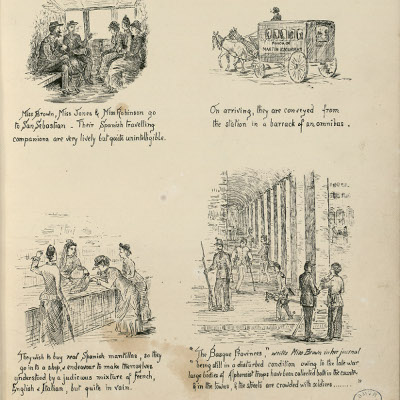 Miss Brown, Miss Jones & Miss Robinson go
to San Sebastian. Their Spanish travelling
companions are very lively but quite unintelligible.
On arriving, they are conveyed from
the station in a barrack of an omnibus.
They wish to buy real Spanish mantillas, so they
go into a shop, & endeavour to make themselves
understood by a judicious mixture of French,
English & Italian, but quite in vain.
"The Basque Provinces," writes Miss Brown in her journal
"being still in a disturbed condition owing to the late war
large bodies of Alphonsist troops have been collected both in the country
& in the towns, & the streets are crowded with soldiers.......